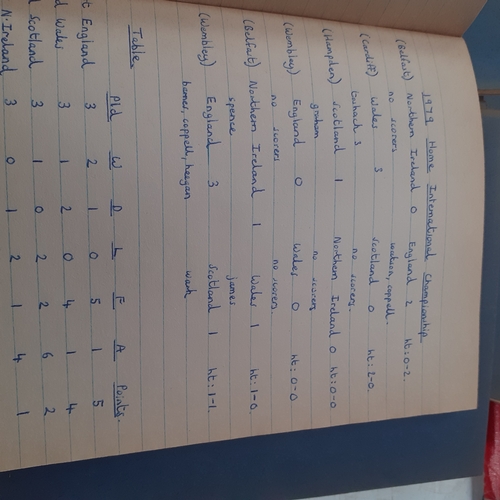 1979 Home International Championship
(Belfast) Northern Ireland 0 England 2 ht: 0-2.
no scorers watson, coppell.
(Cardiff) Wales 3 Scotland 0 ht: 2-0.
toshack 3 no scorers.
(Hampden) Scotland 1 Northern Ireland 0 ht: 0-0
graham no scorers
(Wembley) England 0 Wales 0 ht: 0-0
no scorers no scorers
(Belfast) Northern Ireland 1 Wales 1 ht: 1-0.
spence james
(Wembley) England 3 Scotland 1 ht: 1-1.
barnes, coppell, keegan wark
Table.
Pld W D L F A Points.
t England 3 2 1 0 5 1 5
d Wales 3 1 2 0 4 1 4
d Scotland 3 1 0 2 2 6 2
N. Ireland 3 0 1 2 1 4 1